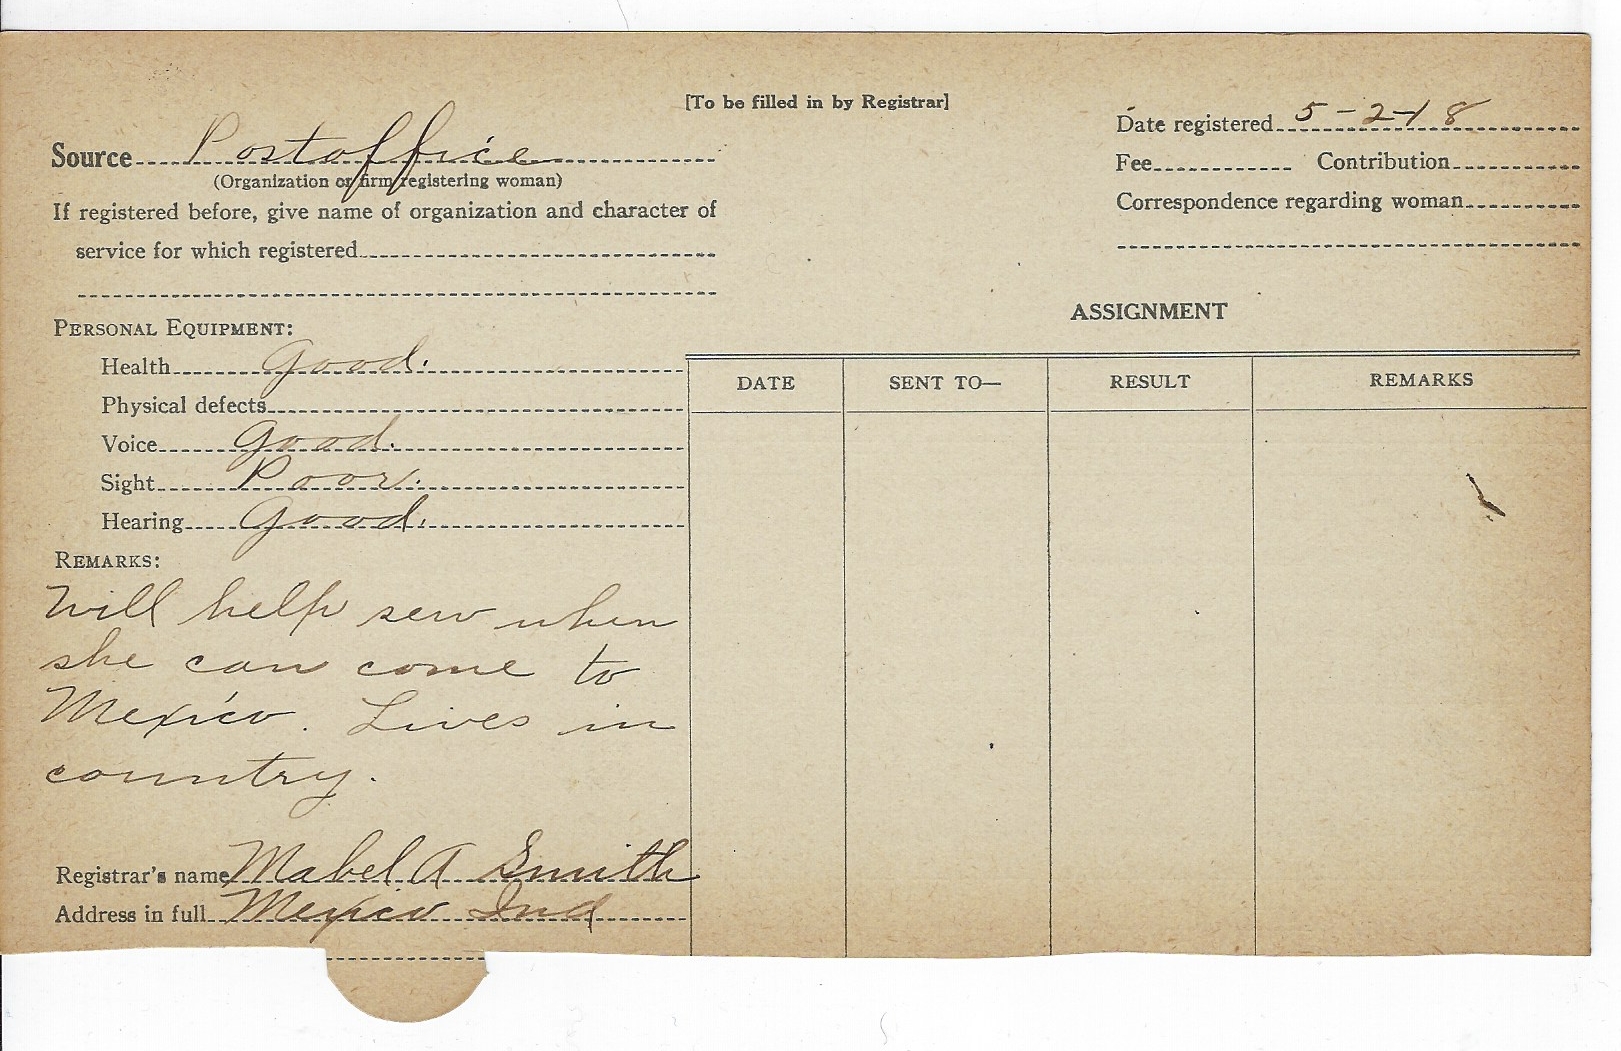 [To be filled in by Registrar]
Source Postoffice
(Organization or firm registering woman)
If registered before, give name of organization and character of
service for which registered
Date registered 5-2-18
Fee Contribution
Correspondence regarding woman
PERSONAL EQUIPMENT:
Health Good.
Physical defects
Voice Good.
Sight Poor.
Hearing Good.
REMARKS:
Will help sew when
she can come to
Mexico. Lives in
country.
Registrar's name Mabel A Smith
Address in full Mexico Ind
ASSIGNMENT
DATE SENT TO— RESULT REMARKS